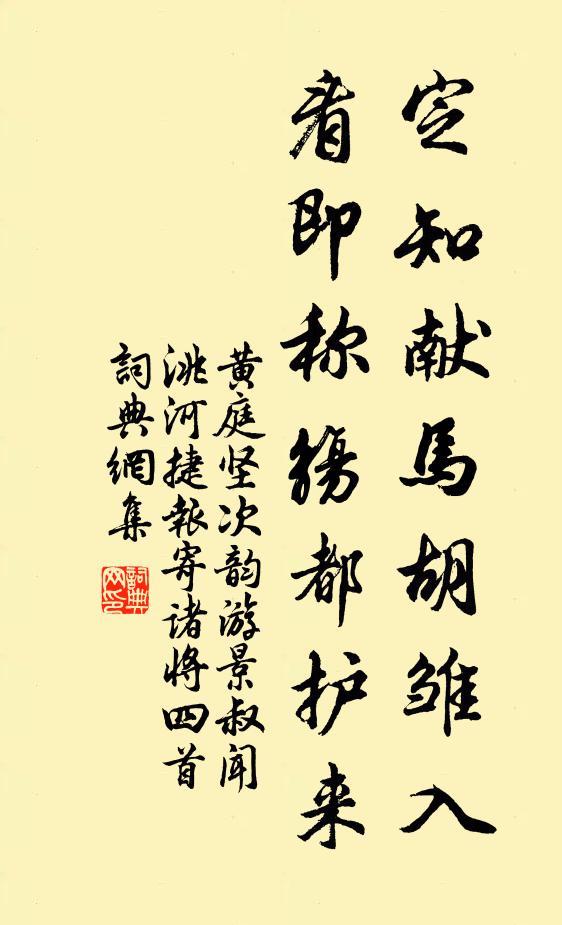 定知献馬胡雏入
看即称觴都护来
黄庭坚次韵游景叔闻
洮河捷報寄诸将四首
詞典網集
詞典网印